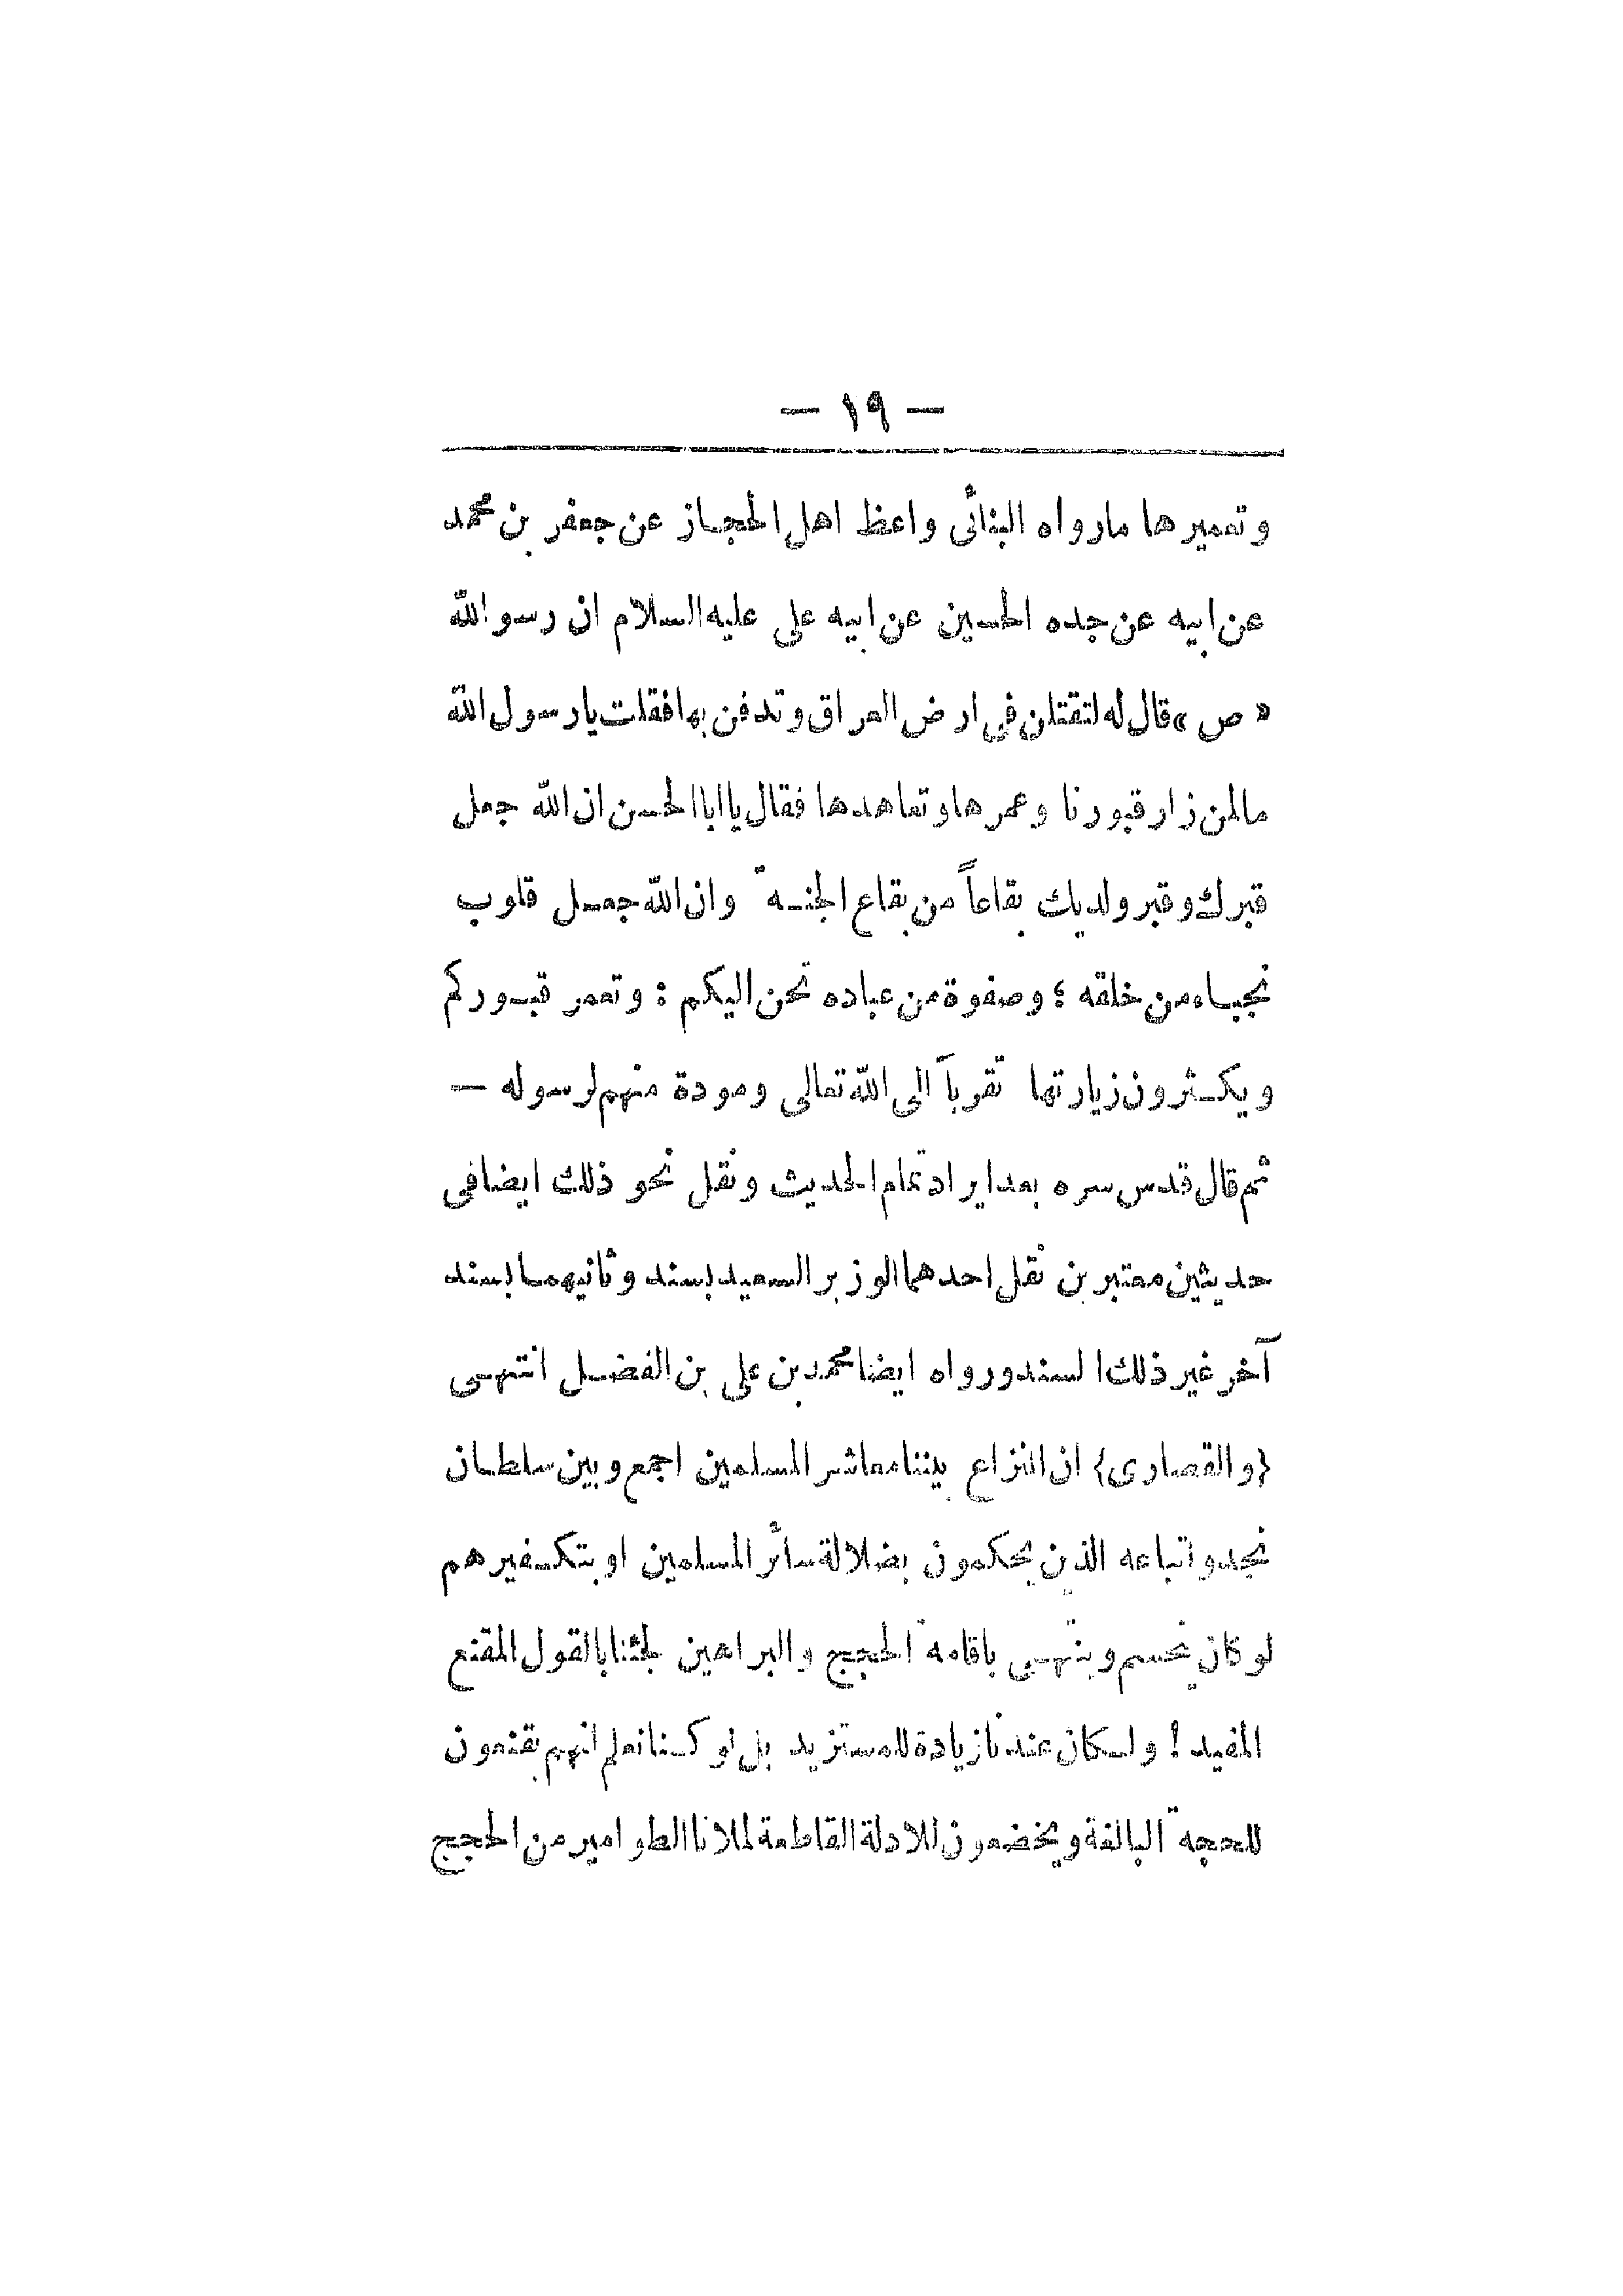 — ١٩ —
وتعميرها مارواه البنائى واعظ اهل الحجاز عن جعفر بن محمد
عن ابيه عن جده الحسين عن ابيه على عليه السلام ان رسو الله
« ص » قال له لتقتلن فى ارض العراق وتدفن بها فقلت يا رسول الله
مالمن زار قبورنا وعمرها وتعاهدها فقال يا ابا الحسن ان الله جعل
قبرك وقبر ولديك بقاعاً من بقاع الجنة وان الله جعل قلوب
نجباء من خلقه ؛ وصفوة من عباده تحن اليكم : وتعمر قبوركم
ويكثرون زيارتها تقرباً الى الله تعالى ومودة منهم لرسوله —
ثم قال قدس سره بعد ايراد تمام الحديث ونقل نحو ذلك ايضا فى
حديثين معتبرين نقل احدهما الوزير السعيد بسند وثانيهما بسند
آخر غير ذلك السند ورواه ايضا محمد بن على بن الفضل انتهى
{والقصارى} ان النزاع بيننا معاشر المسلمين اجمع وبين سلطان
نجد واتباعه الذين يحكمون بضلالة سائر المسلمين او بتكفيرهم
لو كان ينحسم وينتهى باقامة الحجج والبراهين لجئنا بالقول المقنع
المفيد ! ولكان عندنا زيادة للمستزيد بل لو كنا نعلم انهم يقنعون
للحجة البالغة ويخضعون للادلة القاطعة لملانا الطوامير من الحجج